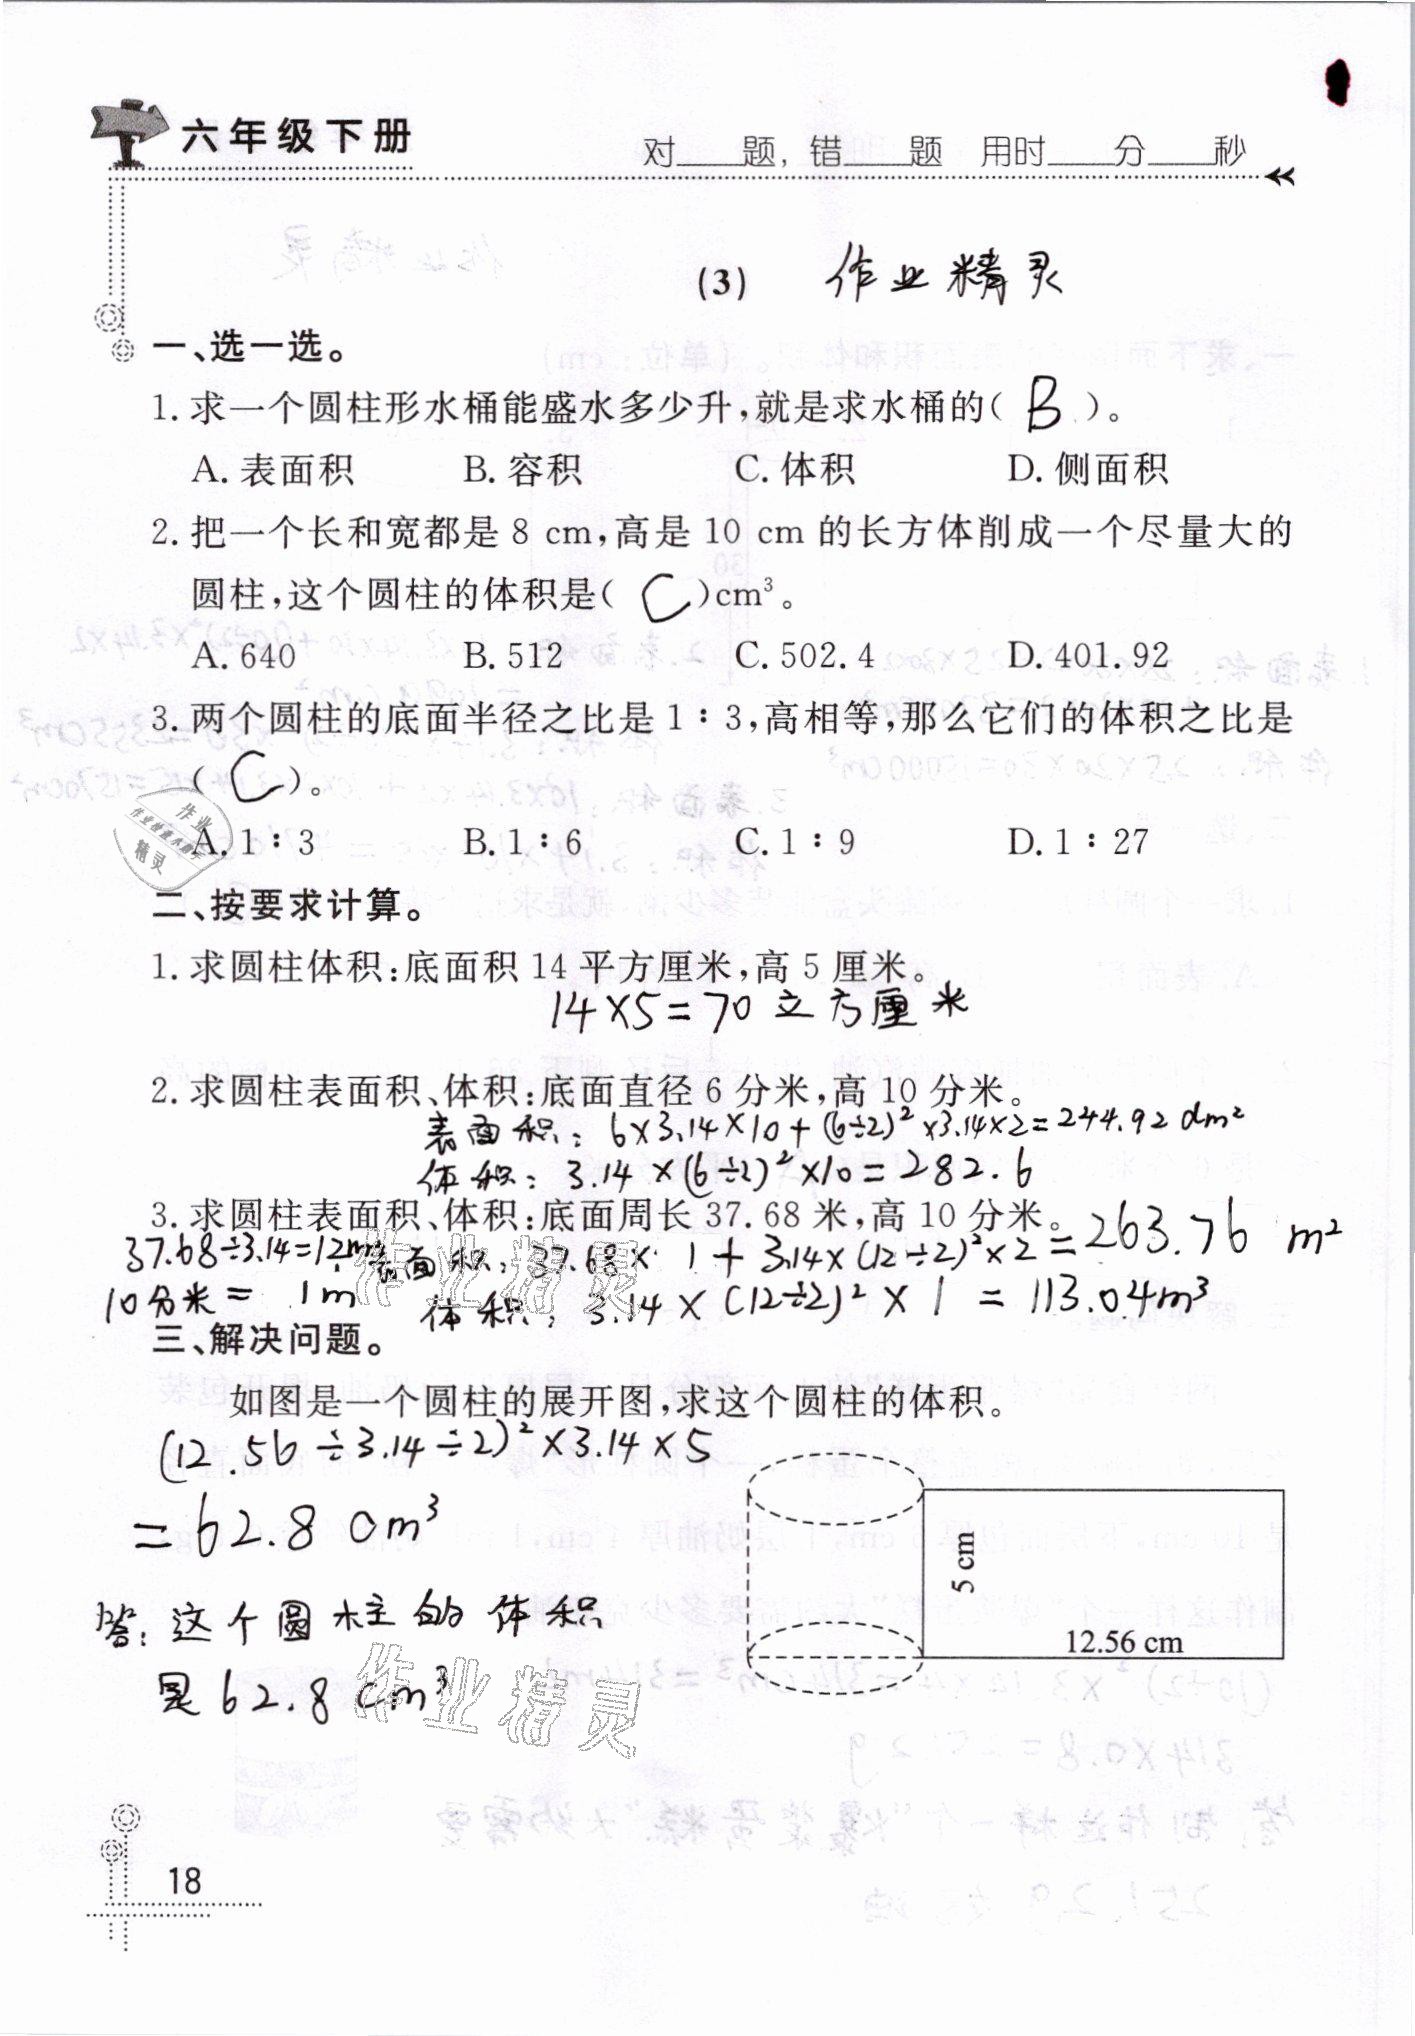 六年级下册
对____题，错____题 用时____分____秒
(3) 作业精灵
一、选一选。
1. 求一个圆柱形水桶能盛水多少升，就是求水桶的( B )。
A. 表面积 B. 容积 C. 体积 D. 侧面积
2. 把一个长和宽都是 8 cm，高是 10 cm 的长方体削成一个尽量大的
圆柱，这个圆柱的体积是( C )cm³。
A. 640 B. 512 C. 502.4 D. 401.92
3. 两个圆柱的底面半径之比是 1∶3，高相等，那么它们的体积之比是
( C )。
A. 1∶3 B. 1∶6 C. 1∶9 D. 1∶27
作业
精灵
二、按要求计算。
1. 求圆柱体积：底面积 14 平方厘米，高 5 厘米。
14×5=70 立方厘米
2. 求圆柱表面积、体积：底面直径 6 分米，高 10 分米。
表面积：6×3.14×10+(6÷2)²×3.14×2=244.92 dm²
体积：3.14×(6÷2)²×10=282.6
3. 求圆柱表面积、体积：底面周长 37.68 米，高 10 分米。
37.68÷3.14=12m 表面积：37.68×1+3.14×(12÷2)²×2=263.76 m²
10分米=1m 体积：3.14×(12÷2)²×1=113.04m³
作业精灵
三、解决问题。
如图是一个圆柱的展开图，求这个圆柱的体积。
(12.56÷3.14÷2)²×3.14×5
=62.8 cm³
5 cm
12.56 cm
答：这个圆柱的体积
是62.8cm³
作业精灵
18